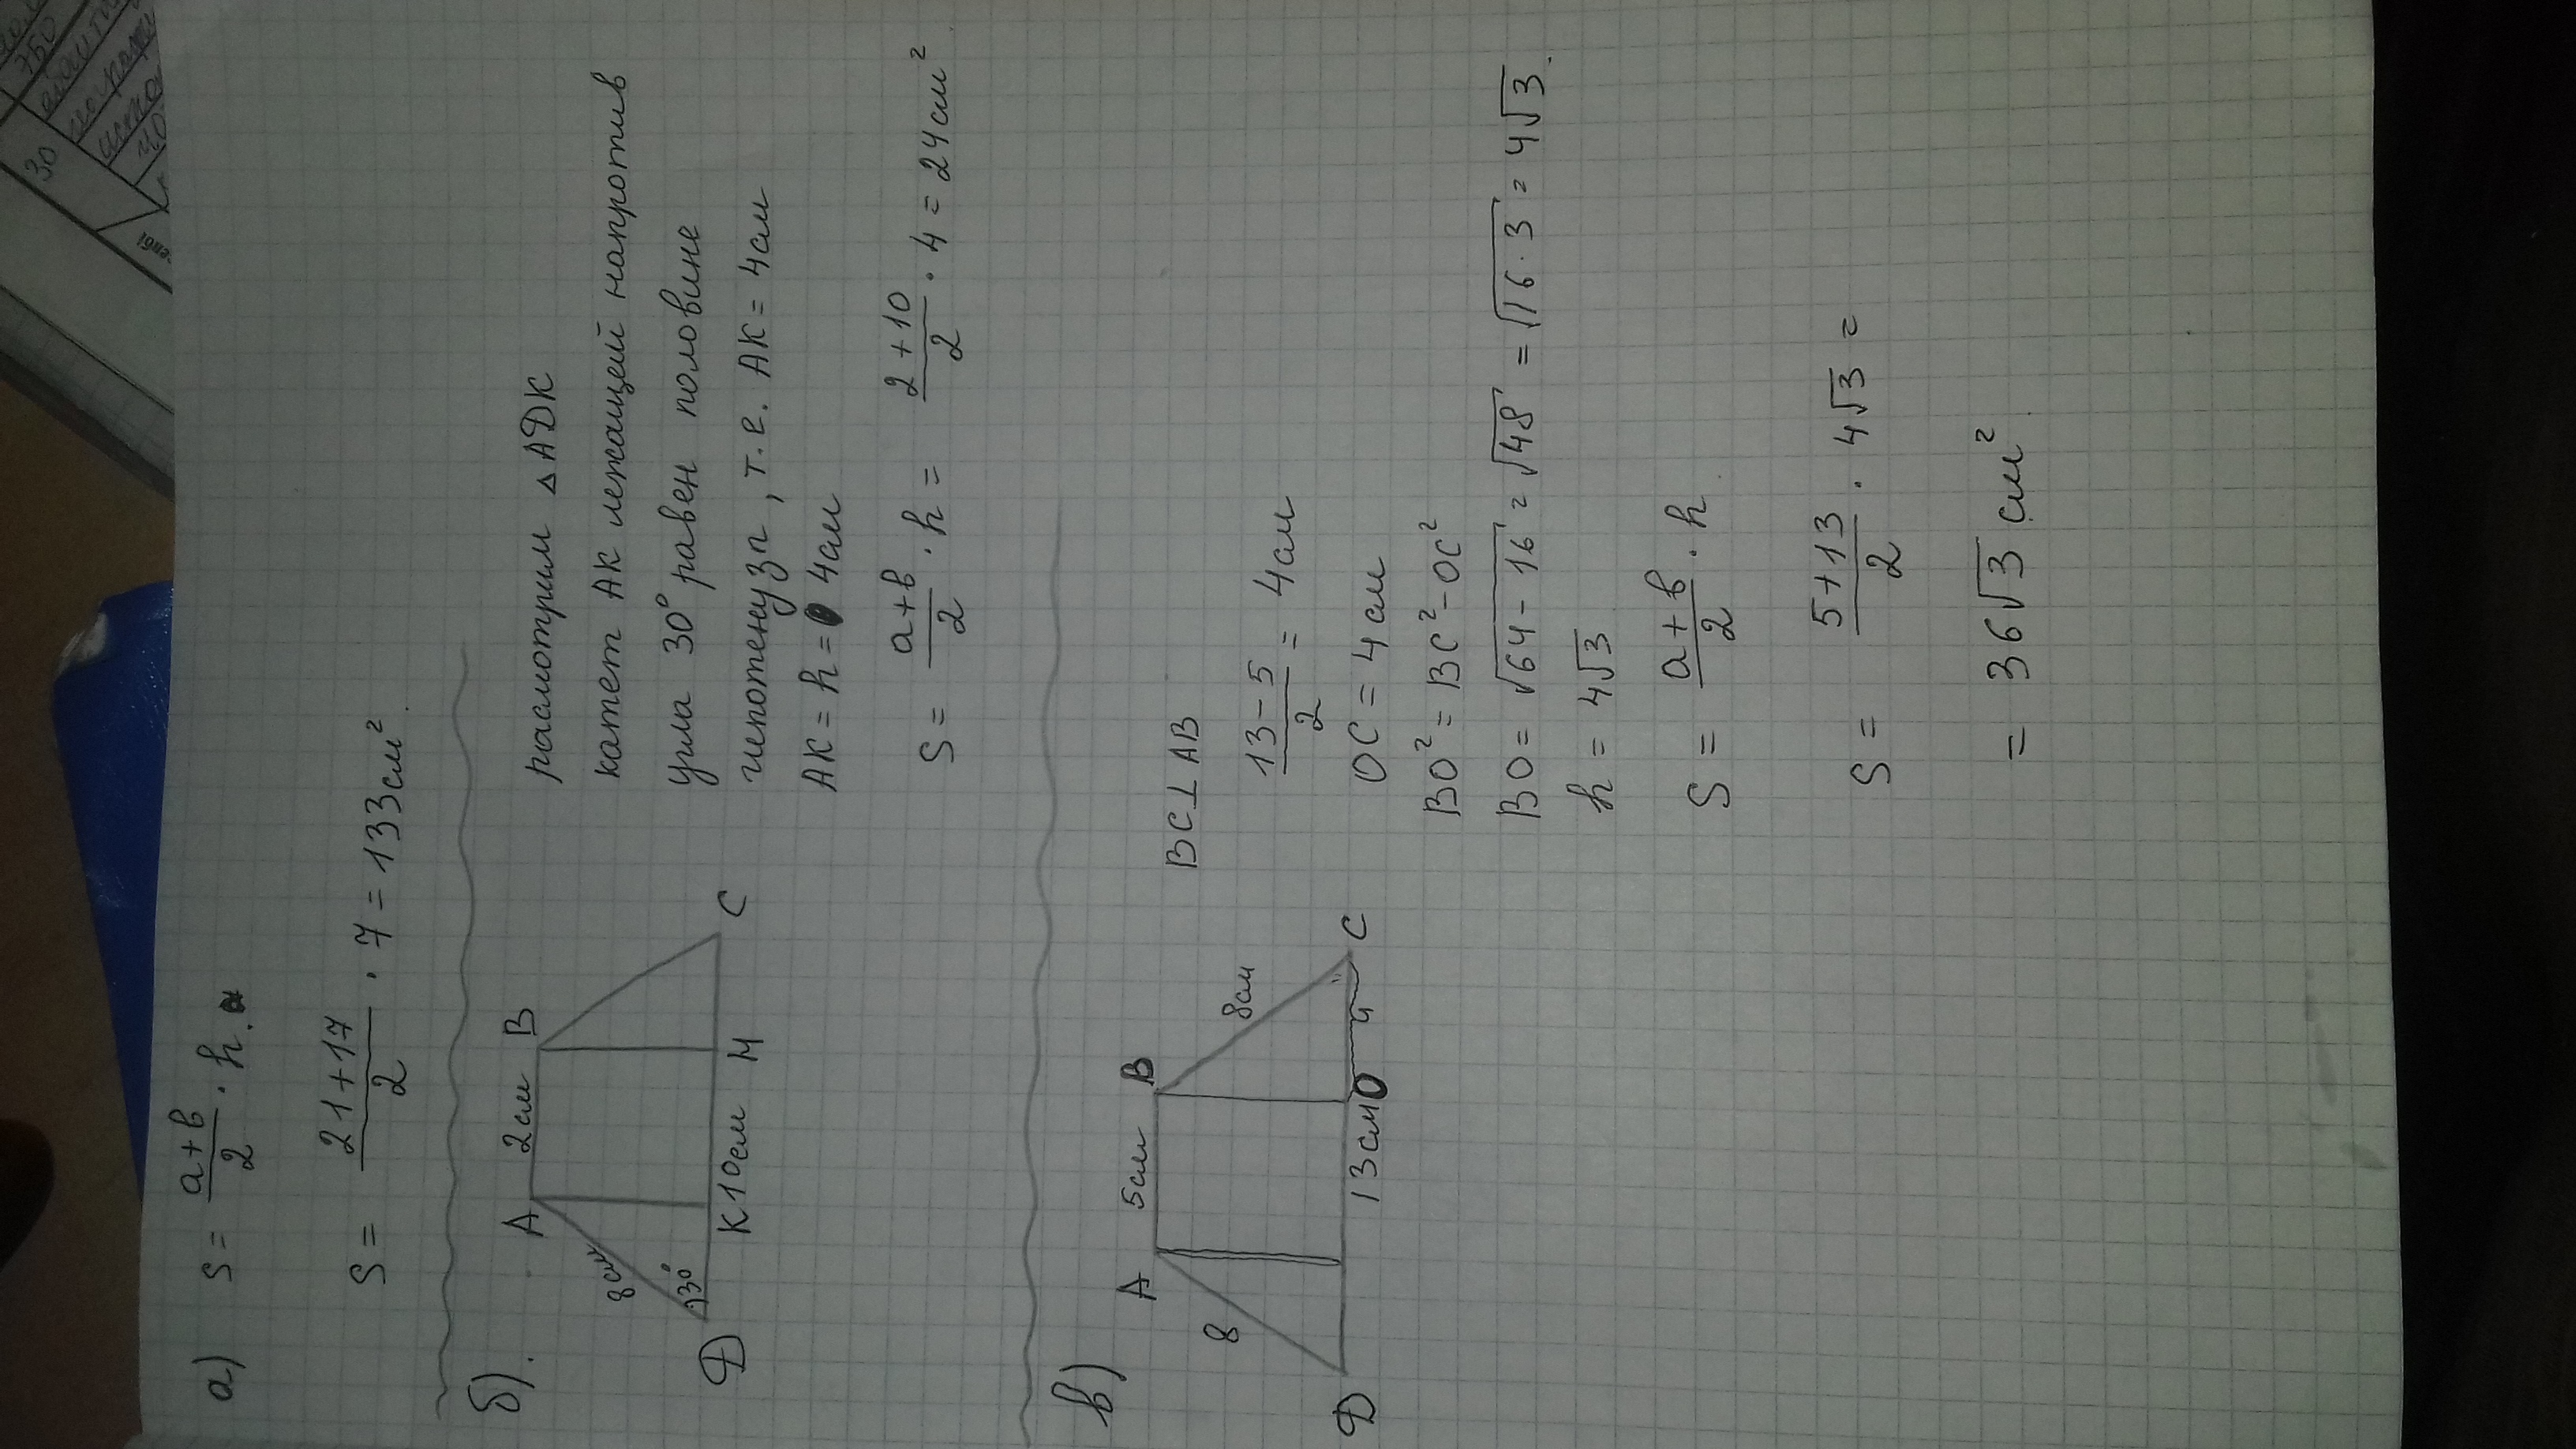 а) S = a+b/2 · h.
S = 21+17/2 · 7 = 133см².
б).
A 2см B
8см
30°
Д K 10см M C
расмотрим △АДК
катет АК лежащей напротив
угла 30° равен половине
гипотенузп, т.е. АК = 4см
АК = h = 4см
S = a+b/2 · h = 2+10/2 · 4 = 24см²
в)
A 5см B
8
8см
Д 13см O 4 C
BC⊥AB
13-5/2 = 4см
OC = 4см
BO² = BC² - OC²
BO = √64-16 = √48 = √16·3 = 4√3.
h = 4√3
S = a+b/2 · h
S = 5+13/2 · 4√3 =
= 36√3 см².
30
750